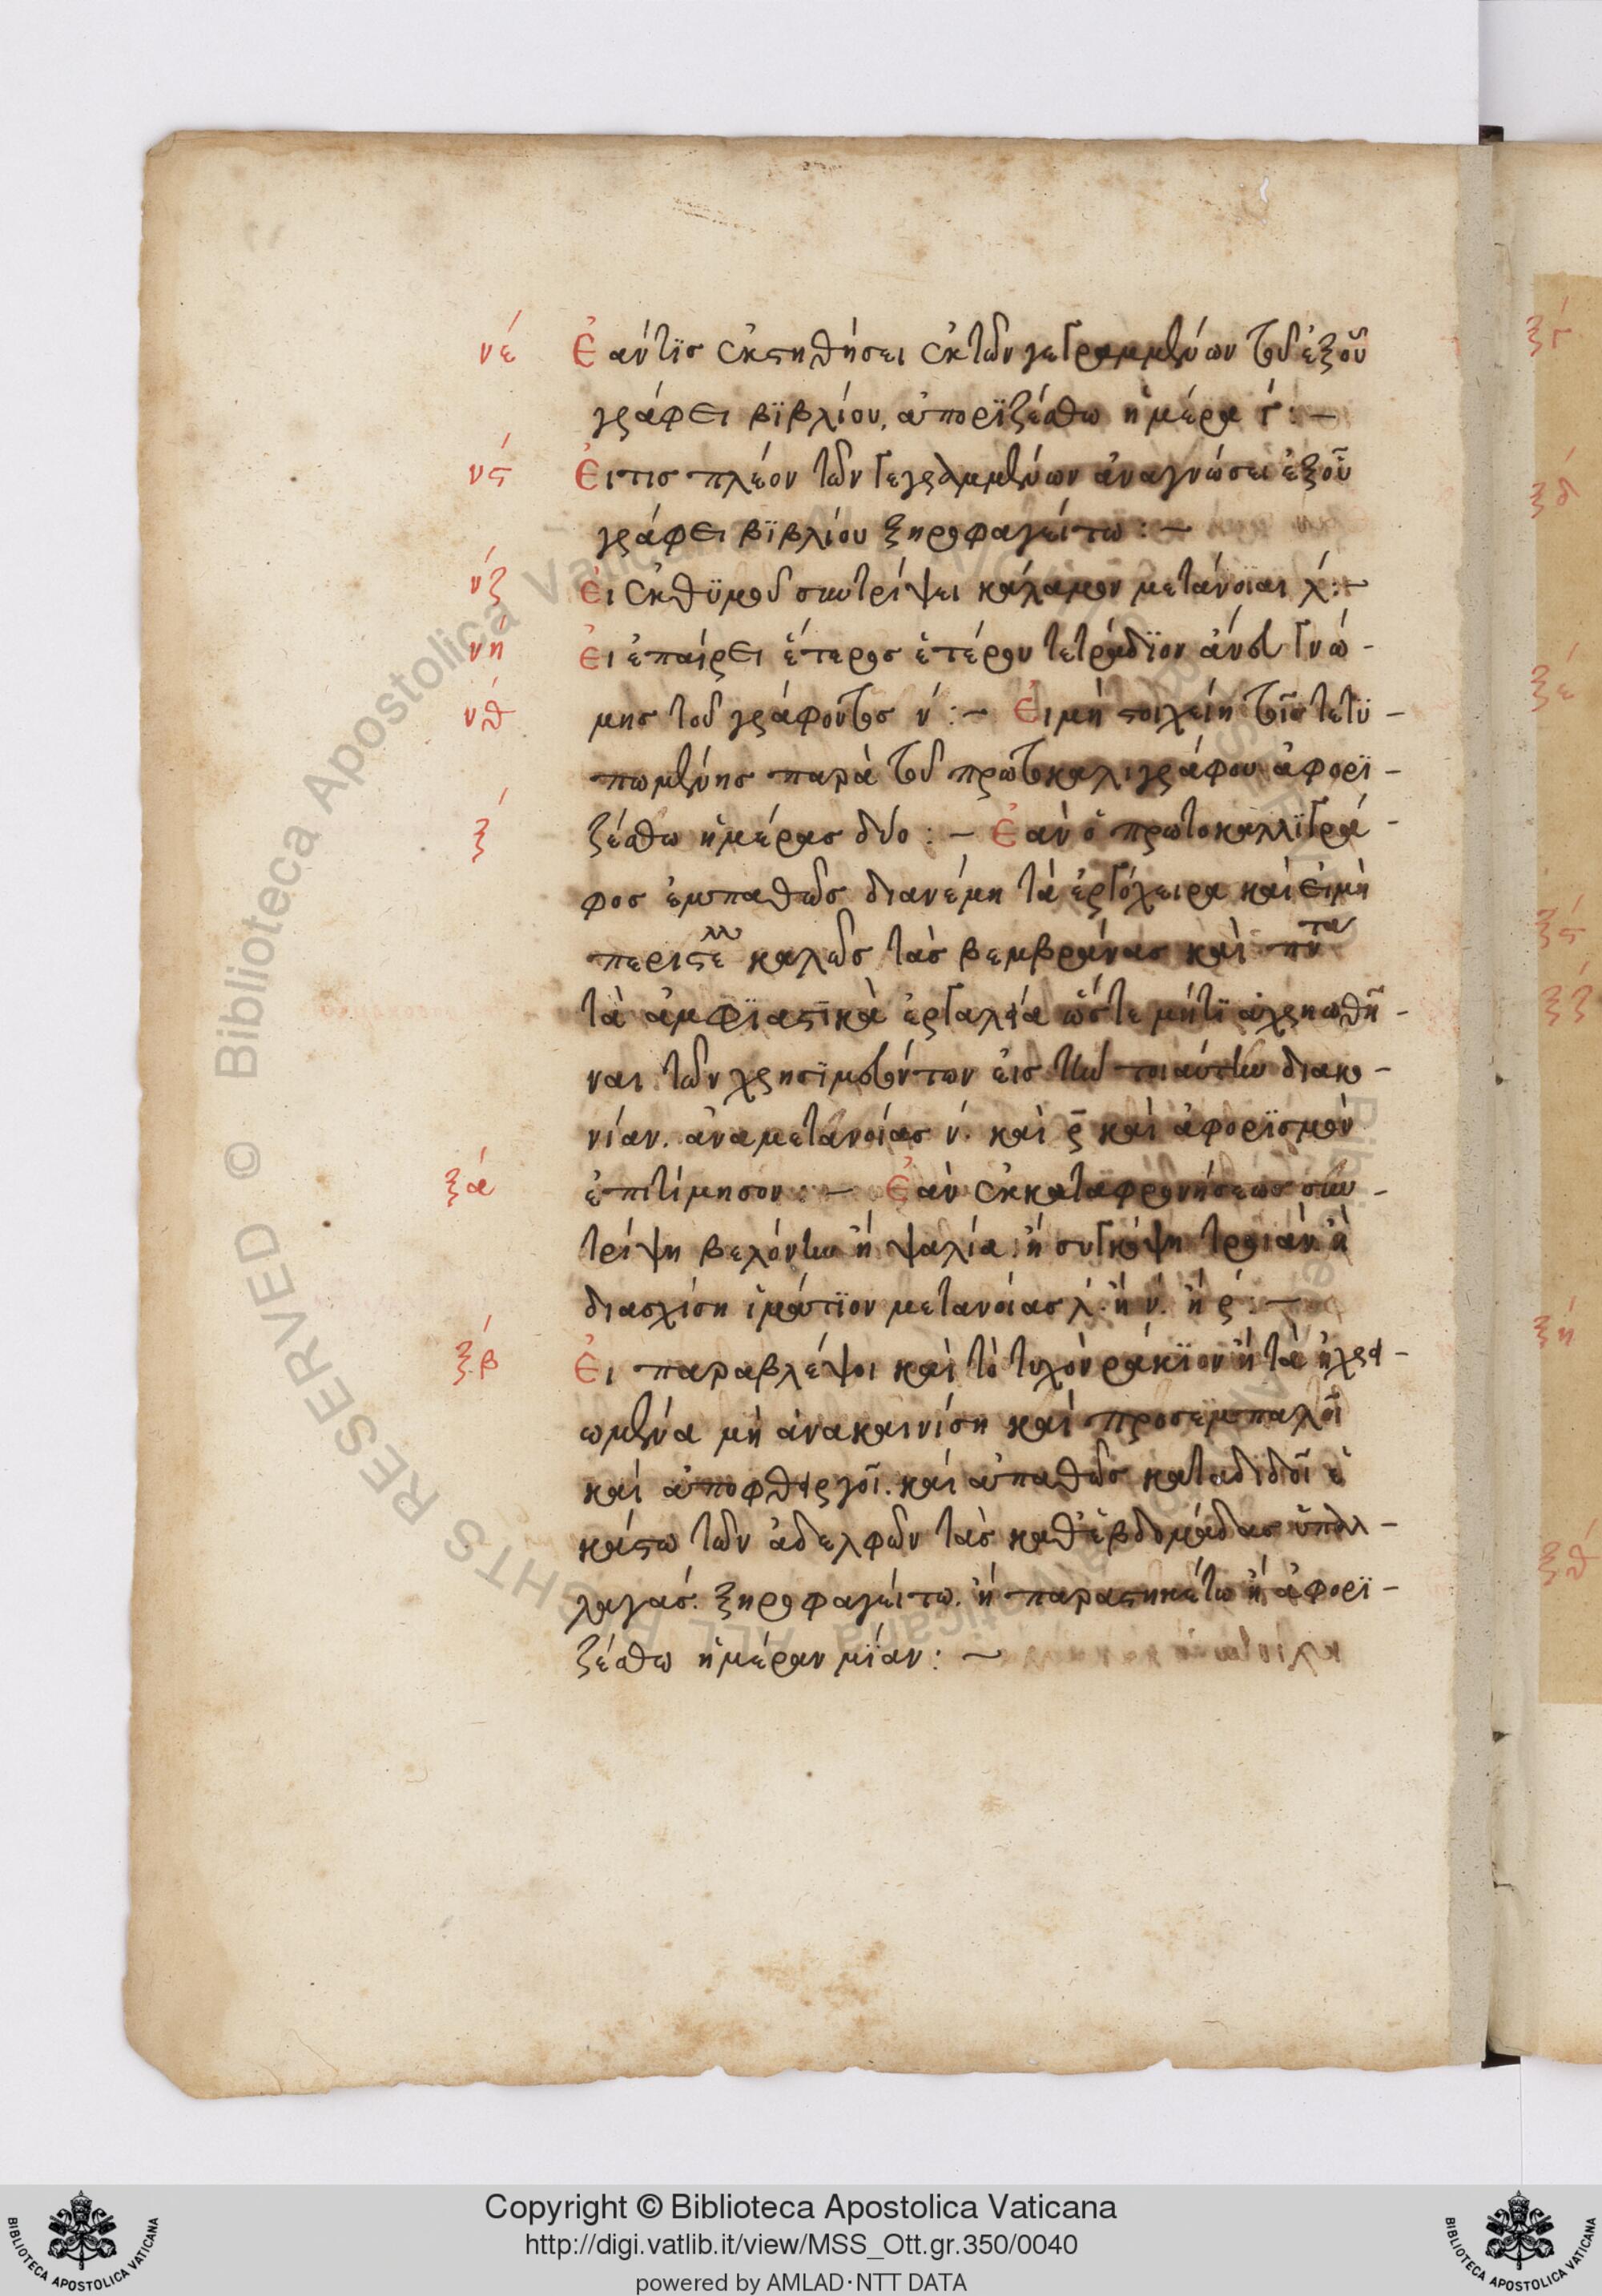 νέ Ἐάντϊσ ἐκστηθήσει ἐκ τῶν γεγραμμένων τοῦ ἐξοῦ
γράφει βϊβλίου, ἀπορϊζέσθω ἡμέρα γ́ : —
νϛ́ Εἴτισ πλέον τῶν γεγραμμένων ἀναγνώσει ἐξοῦ
γράφει βϊβλίου ξηροφαγείτω : —
νζ́ Εἰ ἐκθϋμοῦ συντρίψει κάλαμον μετάνοϊαι λ́ : —
νή Εἰ ἐπαίρει ἕτεροσ ἑτέρου τετράδϊον ἄνευ γνώ -
νθ́ μησ τοῦ γράφοντοσ ν́ : — Εἰ μὴ στοιχείη τοῖσ τετϋ -
πωμένησ παρὰ τοῦ πρωτοκαλιγράφου ἀφορϊ -
ξ́ ζέσθω ἡμέρασ δύο : — Ἐὰν ὁ πρωτοκαλλϊγρά -
φοσ ἐμπαθῶσ διανέμη τὰ ἐργόχειρα καὶ εἰ μὴ
περιστέλλ καλῶσ τὰσ βεμβράνασ καὶ πντα
τὰ ἀμφϊαστϊκὰ ἐργαλεῖα ὥστε μήτϊ ἀχρηωθῆ -
ναι τῶν χρησϊμευόντων εἰσ τὴν τοιαύτην διακο -
νίαν. ἀνα μετανοίασ ν́. καὶ ρ̄ καὶ ἀφορϊσμὸν
ξά ἐπιτίμησον : — Ἐὰν ἐκ καταφρονήσεωσ συν -
τρίψη βελόνην ἢ ψαλία. ἢ συγκόψη τροιάν. ἢ
διασχίση ἱμάτϊον μετανοίασ λ́. ἢ ν́. ἢ ρ́ : —
ξβ́ Εἰ παραβλέψοι καὶ τὸ τυχὸν ράκϊον ἢ τὰ ἠχρει -
ωμένα μὴ ἀνακαινίση καὶ προσεμπαλοῖ
καὶ ἀποφθεργοῖ. καὶ ἀπαθῶσ καταδιδοῖ ἑ
κάστω τῶν ἀδελφῶν τὰσ καθ' ἑβδομάδασ ὑπαλ -
λαγάσ. ξηροφαγείτω. ἢ παραστηκέτω ἢ ἀφορϊ -
ζέσθω ἡμέραν μίαν : —
ξγ́
ξδ́
ξέ
ξϛ́
ξζ́
ξή
ξθ́
© Biblioteca Apostolica Vaticana ALL RIGHTS RESERVED
Copyright © Biblioteca Apostolica Vaticana
http://digi.vatlib.it/view/MSS_Ott.gr.350/0040
powered by AMLAD·NTT DATA
BIBLIOTECA APOSTOLICA VATICANA
BIBLIOTECA APOSTOLICA VATICANA